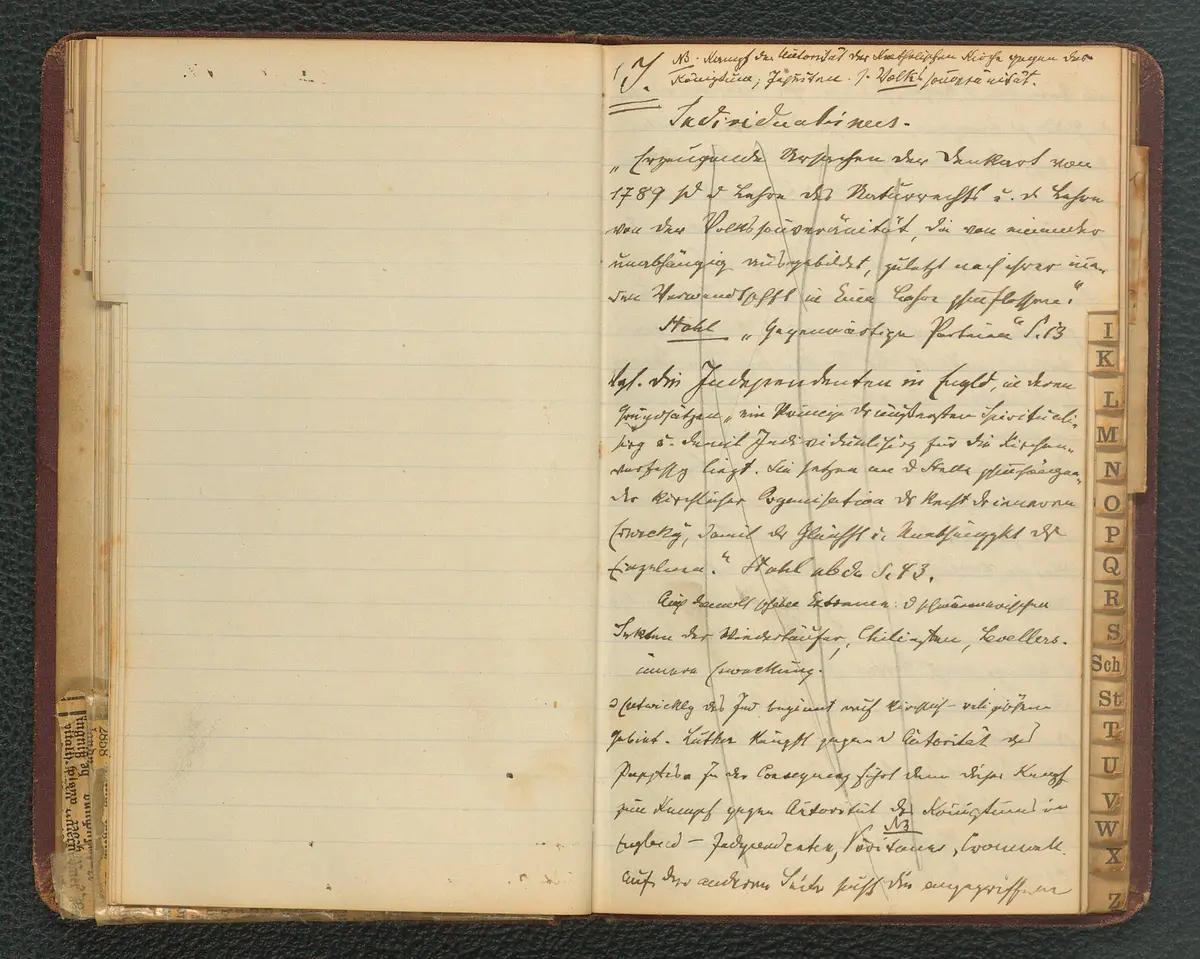 J.
NB. Kampf der Autorität der Katholischen Kirche gegen das
Königtum; Jesuiten. s. Volkssouveränität.
Individualismus.
„Erzeugende Ursachen der Denkart von
1789 sd d Lehre des Naturrechts u. d Lehre
von der Volkssouveränität, die von einander
unabhängig ausgebildet, zuletzt nach ihrer inne-
ren Verwandtschft in Eine Lehre zusflossen."
Stahl „Gegenwärtige Parteien" S. 13
Vgl. die Independenten in Engld, in deren
Grundsätzen „ein Princip der äußersten Spirituali-
sirg u. damit Individualisirg für die Kirchen-
verfassg liegt. Sie setzen an d Stelle zushängen-
der kirchlicher Organisation das Recht der inneren
Erweckg, damit die Gleichht u. Unabhängigkt des
Einzelnen." Stahl S. 43.
Extreme: d schwärmerischen
Sekten der Wiedertäufer, Chiliasten, Levellers.
innere Erweckung.
Entwicklg des Ind beginnt auf kirchlich-religiösem
Gebiet. Luther kämpft gegen d Autorität des
Papstes. In der Consequenz führt dann dieser Kampf
zum Kampf gegen Autorität des Königtums in
NB
England – Independenten, Puritaner, Cromwell.
Auf der anderen Seite sucht die angegriffene
I
K
L
M
N
O
P
Q
R
S
Sch
St
T
U
V
W
X
Z